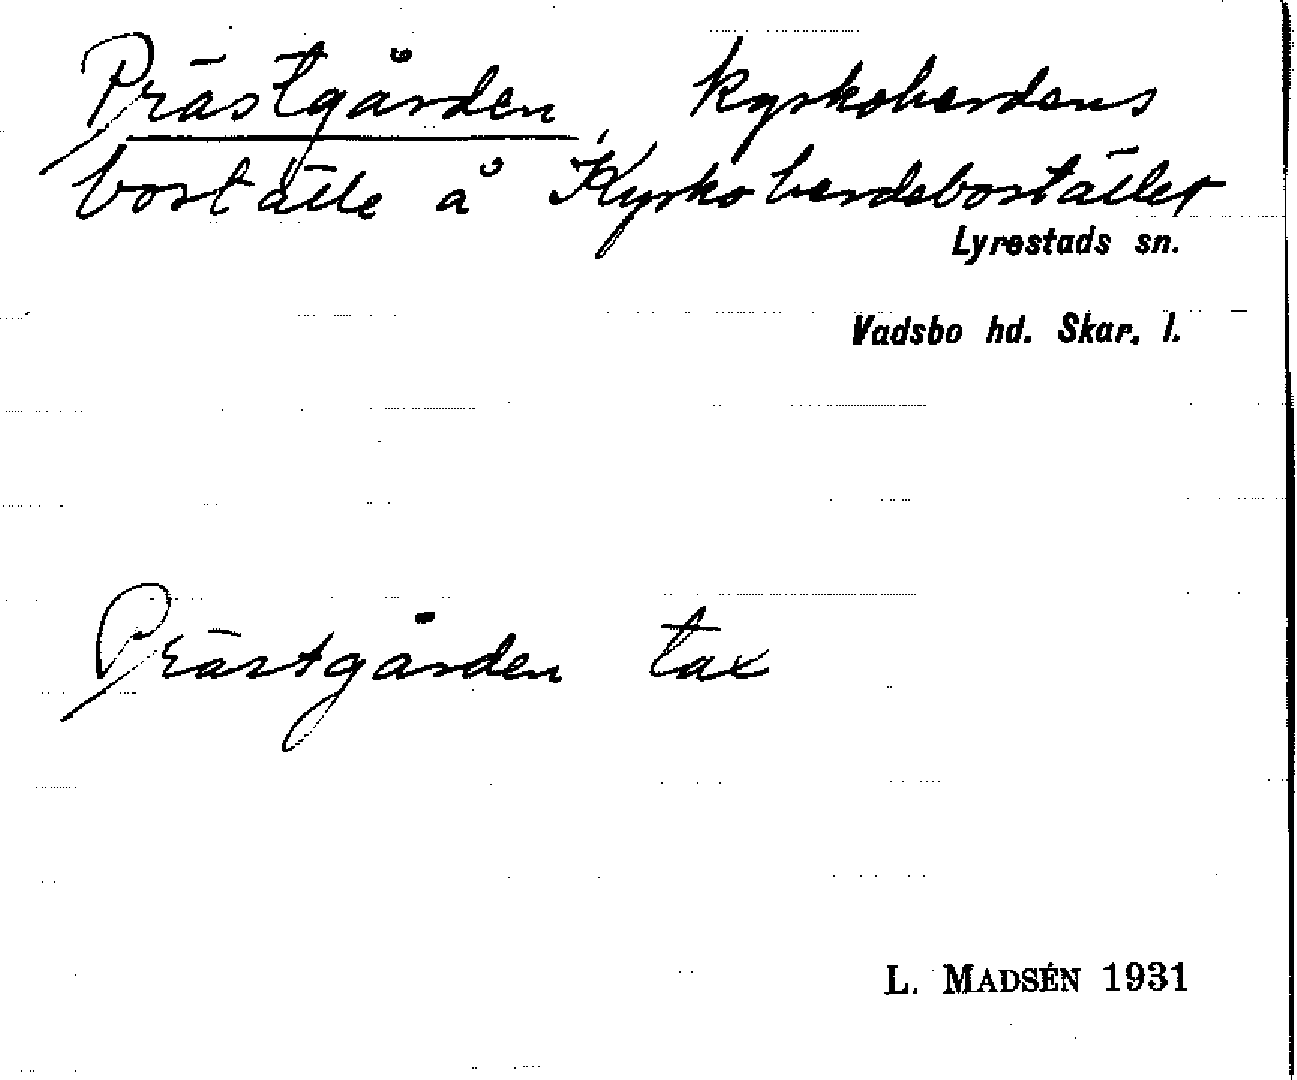 Prästgården, kyrkoherdens
boställe å Kyrkoherdebostället
Lyrestads sn.
Vadsbo hd. Skar. l.
Prästgården tax
L. MADSÉN 1931